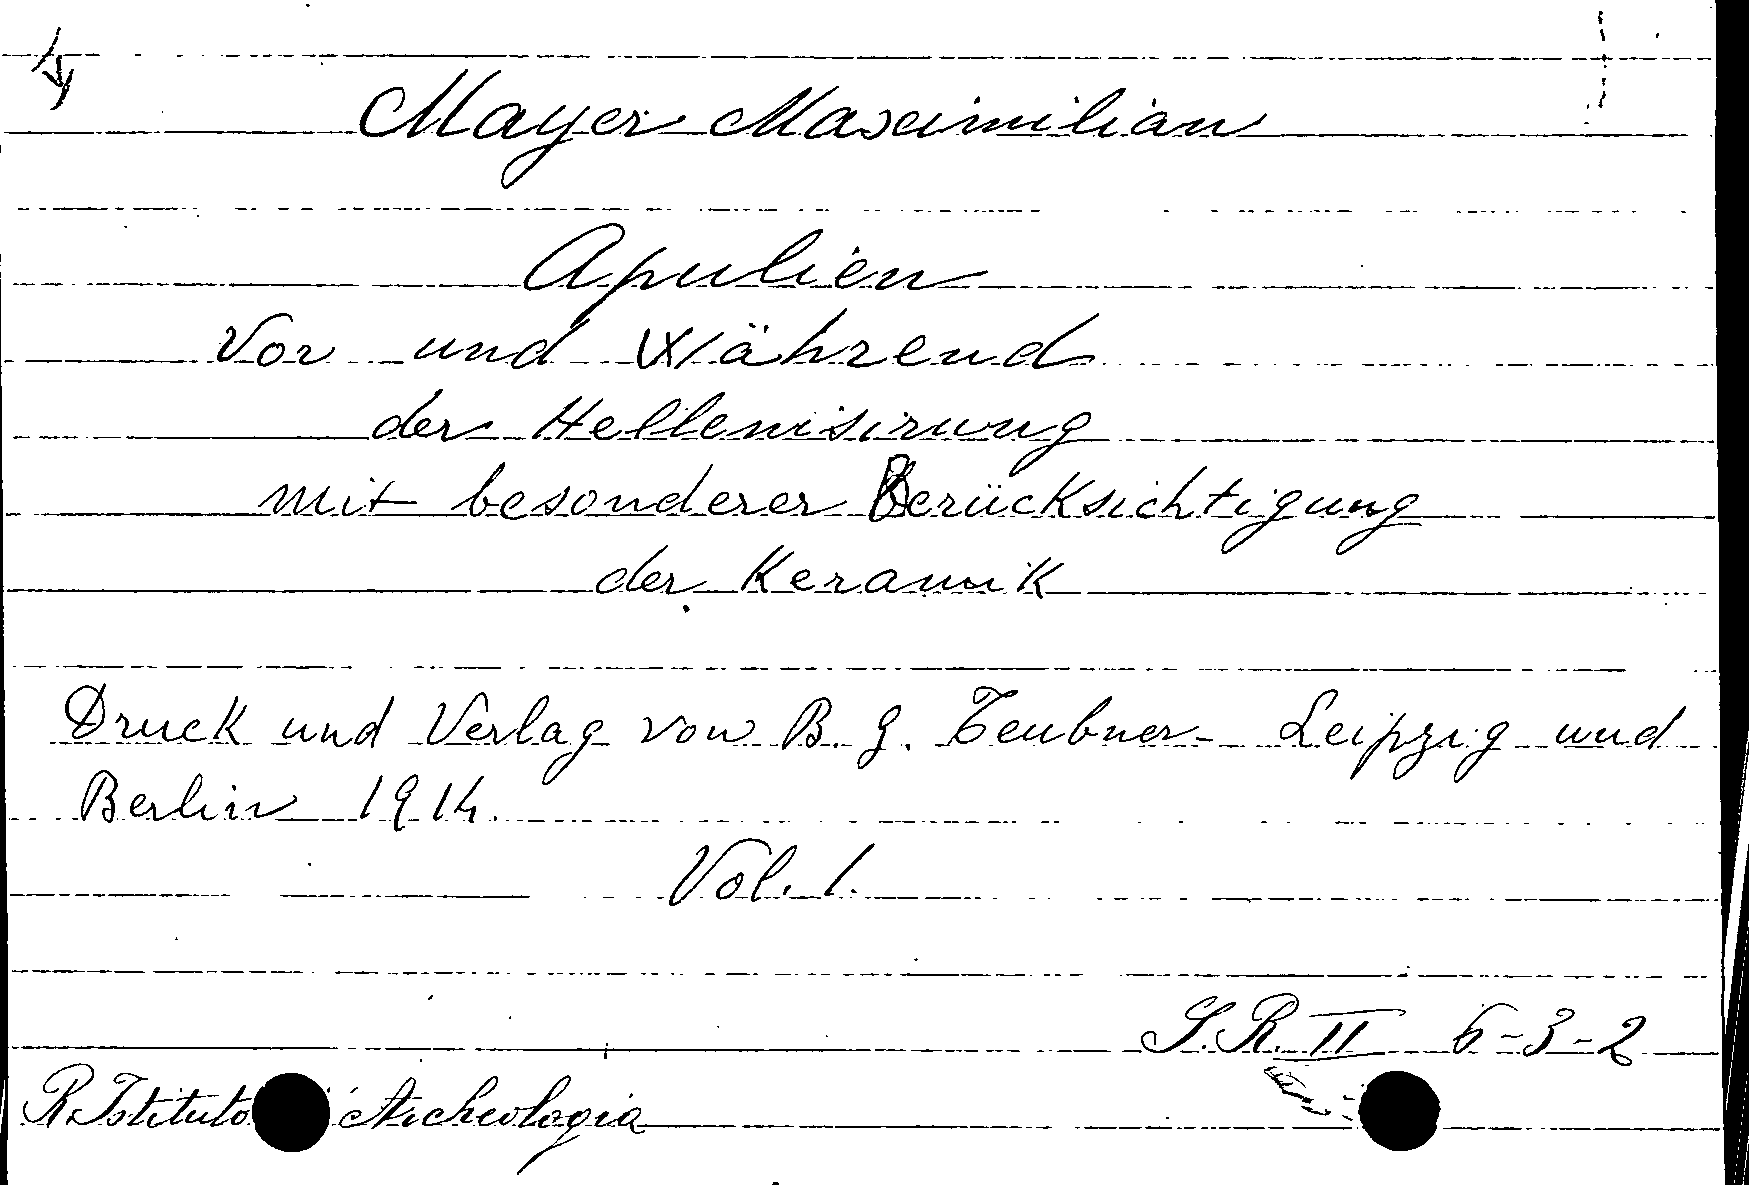 Mayer Maximilian
Apulien
Vor und Während
der Hellenisirung
mit besonderer Berücksichtigung
der Keramik
Druck und Verlag von B. G. Teubner - Leipzig und
Berlin 1914.
Vol. 1.
S. R. II 6-3-2
R. Istituto Archeologia